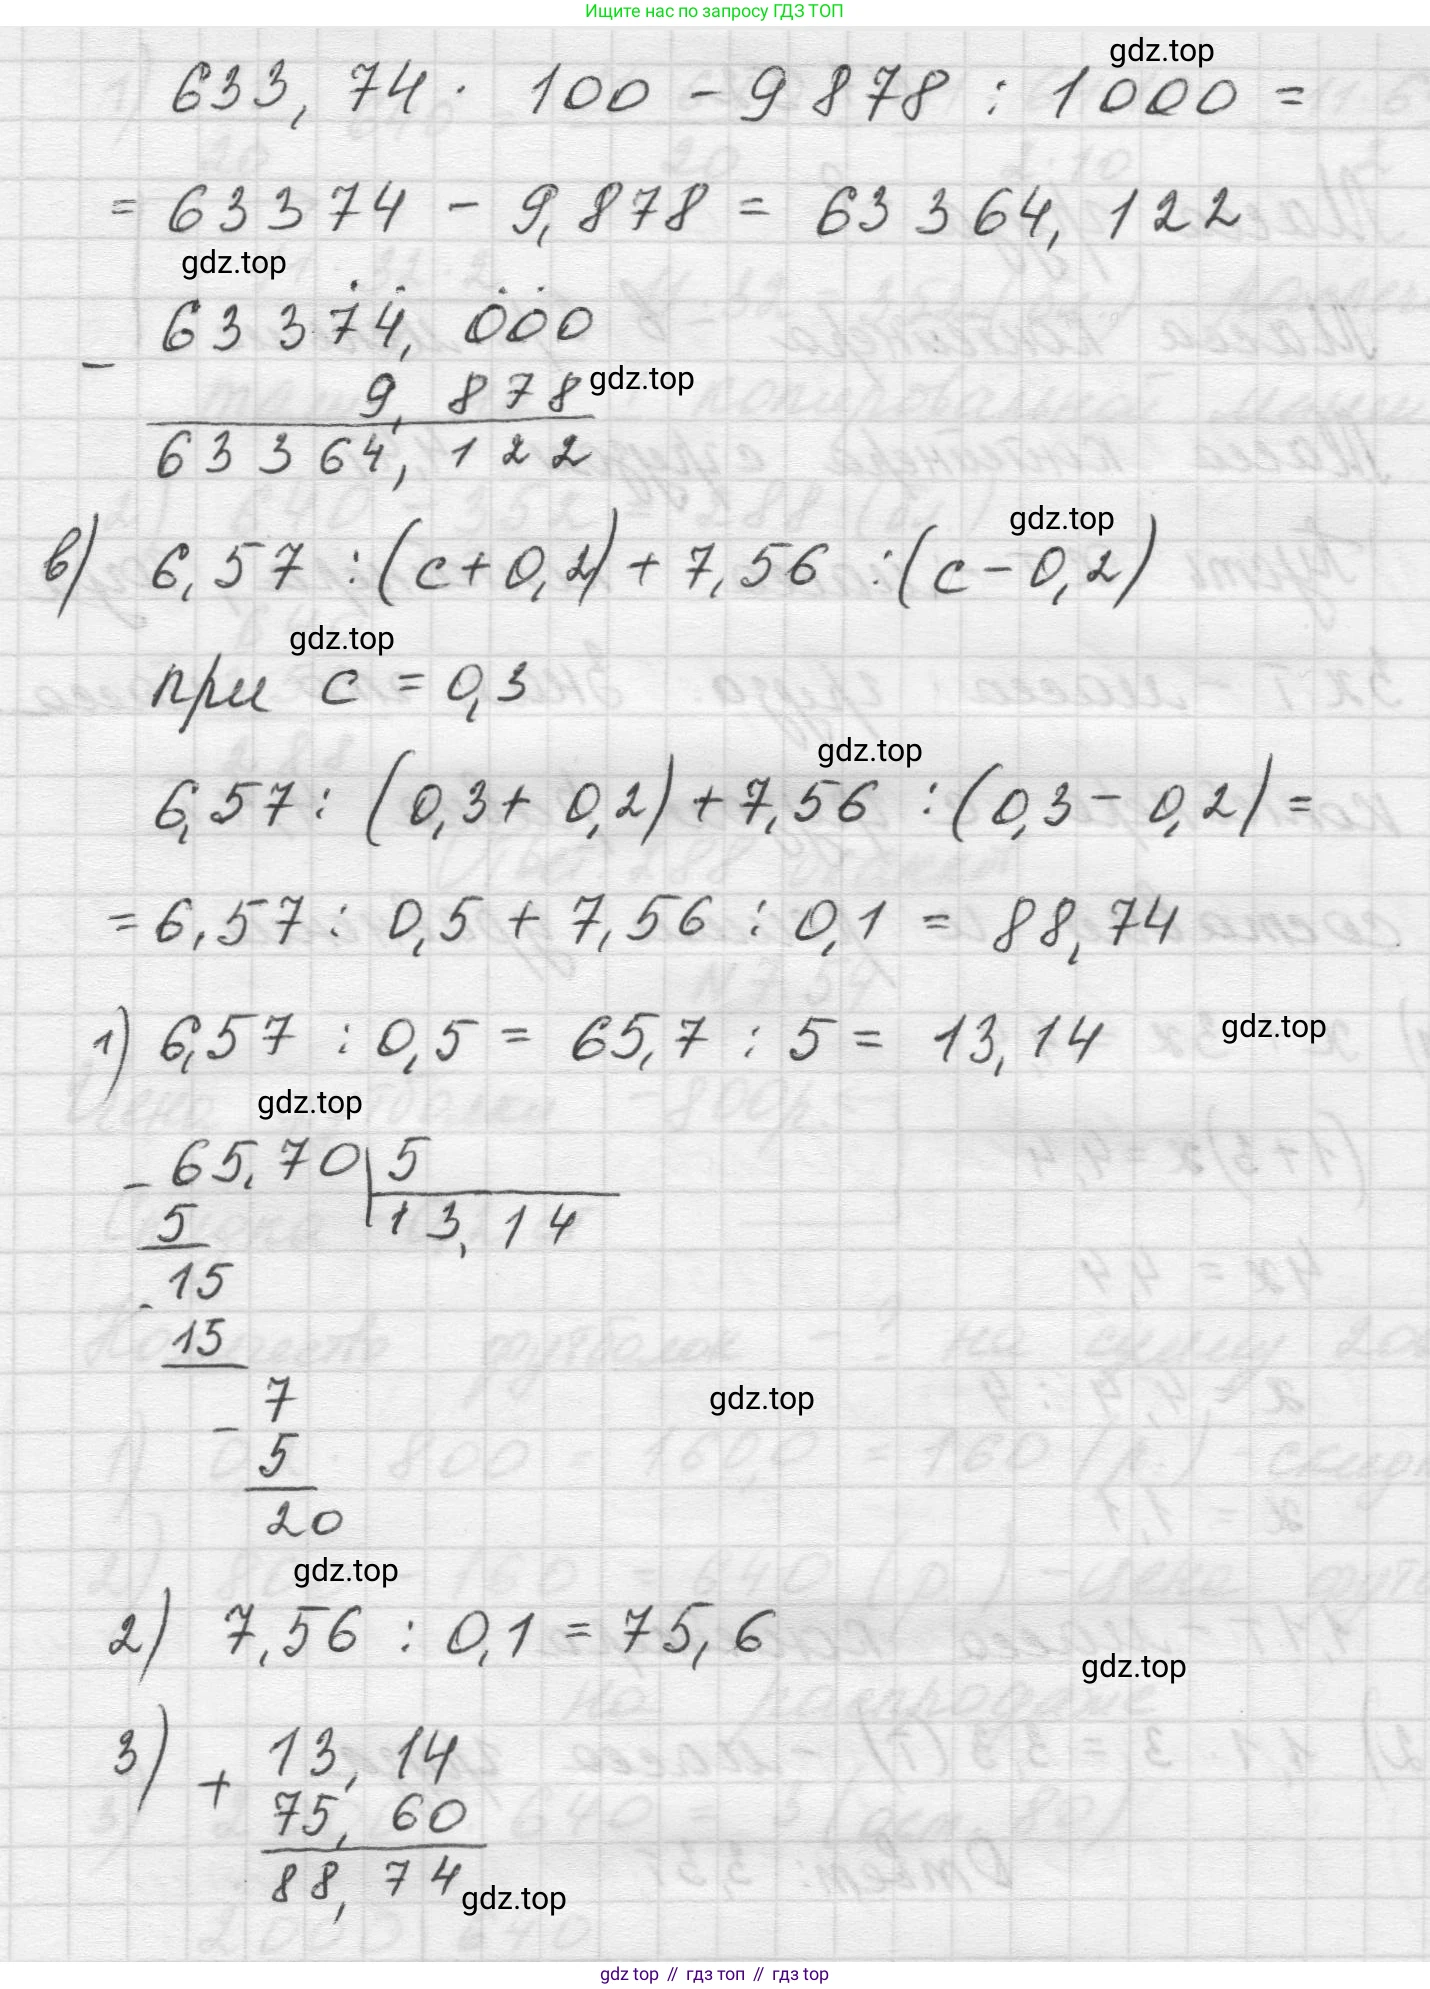 Ищите нас по запросу ГДЗ ТОП
gdz.top
633,74 · 100 - 9878 : 1000 =
= 63374 - 9,878 = 63364,122
gdz.top
63374,000
-
9,878
gdz.top
63364,122
gdz.top
в) 6,57 : (c + 0,2) + 7,56 : (c - 0,2)
gdz.top
при c = 0,3
gdz.top
6,57 : (0,3 + 0,2) + 7,56 : (0,3 - 0,2) =
= 6,57 : 0,5 + 7,56 : 0,1 = 88,74
1) 6,57 : 0,5 = 65,7 : 5 = 13,14
gdz.top
gdz.top
- 65,70 | 5
5 13,14
- 15
15
- 7
5
20
gdz.top
gdz.top
2) 7,56 : 0,1 = 75,6
gdz.top
3) + 13,14
75,60
88,74
gdz.top
gdz top // гдз топ // gdz top